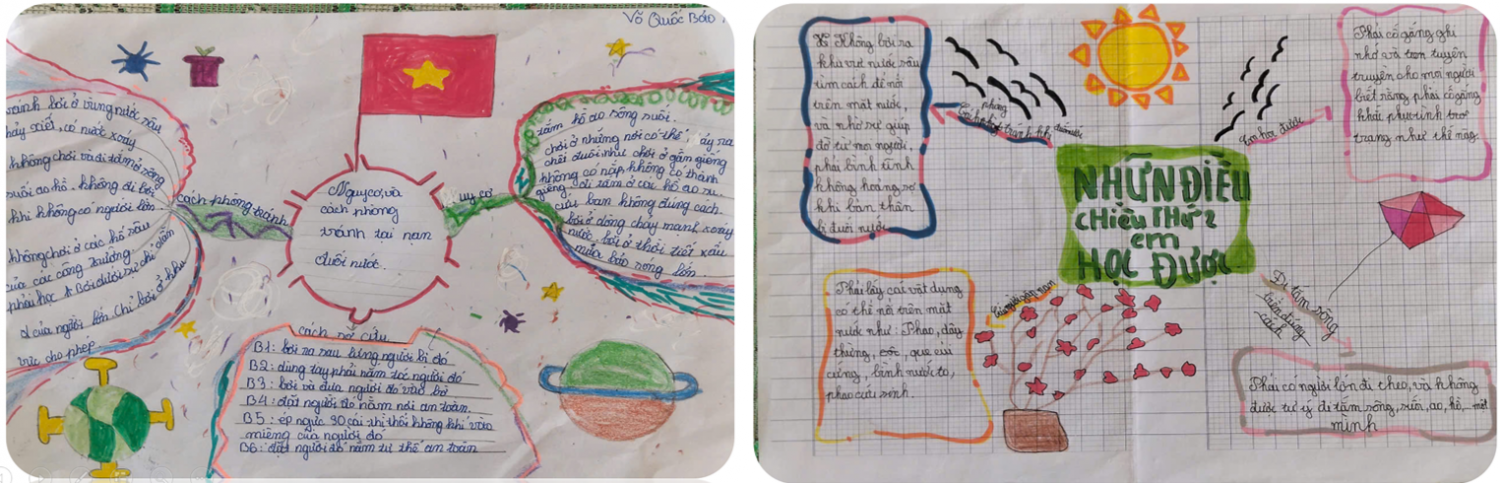 Võ Quốc Bảo
tránh bơi ở vùng nước sâu
chảy xiết, có nước xoáy
không chơi và đi tắm ở sông
suối ao hồ. không đi bơi
khi không có người lớn
không chơi ở các hố sâu
của các công trường.
phải học bơi dưới sự chỉ dẫn
của người lớn. Chỉ bơi ở khu
vực cho phép
cách phòng tránh
Nguy cơ, và
cách phòng
tránh tại nạn
đuối nước.
uy cơ
tắm hồ ao sông suối.
chơi ở những nơi có thể xảy ra
chết đuối như chơi ở gần giếng
không có nắp, không có thành
giếng. đi tắm ở các hồ ao su
cứu bạn không đúng cách.
bơi ở dòng chảy mạnh, xoáy
nước, bơi ở thời tiết xấu
mưa bảo sóng lớn.
cách sơ cứu
B1: bơi ra sau lưng người bị đó
B2: dùng tay phải nắm tóc người đó
B3: bơi và đưa người đó vào bờ
B4: đặt người đó nằm nơi an toàn.
B5: ép ngực 30 cái thì thổi không khí vào
miệng của người đó
B6: đặt người đó nằm tư thế an toàn
Không bơi ra
khu vực nước sâu
tìm cách để nổi
trên mặt nước,
và nhờ sự giúp
đỡ từ mọi người.
phải bình tĩnh
không hoảng sợ
khi bản thân
bị đuối nước
phòng
tránh
NHỮN ĐIỀU
CHIỀU THỨ 2
em
HỌC ĐƯỢC
học được
Phải cố gắng ghi
nhớ và tryn tuyên
truyền cho mọi người
biết rằng phải cố gắng
khắc phục tình trơ
trạng như thế này.
Phải lấy các vật dụng
có thể nổi trên mặt
nước như: Phao, dây
thừng, cốc, que củi
cứng, bình nước to,
phao cứu sinh.
Đi tắm sông
đúng
cách
Phải có người lớn đi theo, và không
được tự ý đi tắm sông, suối, ao, hồ, một
mình